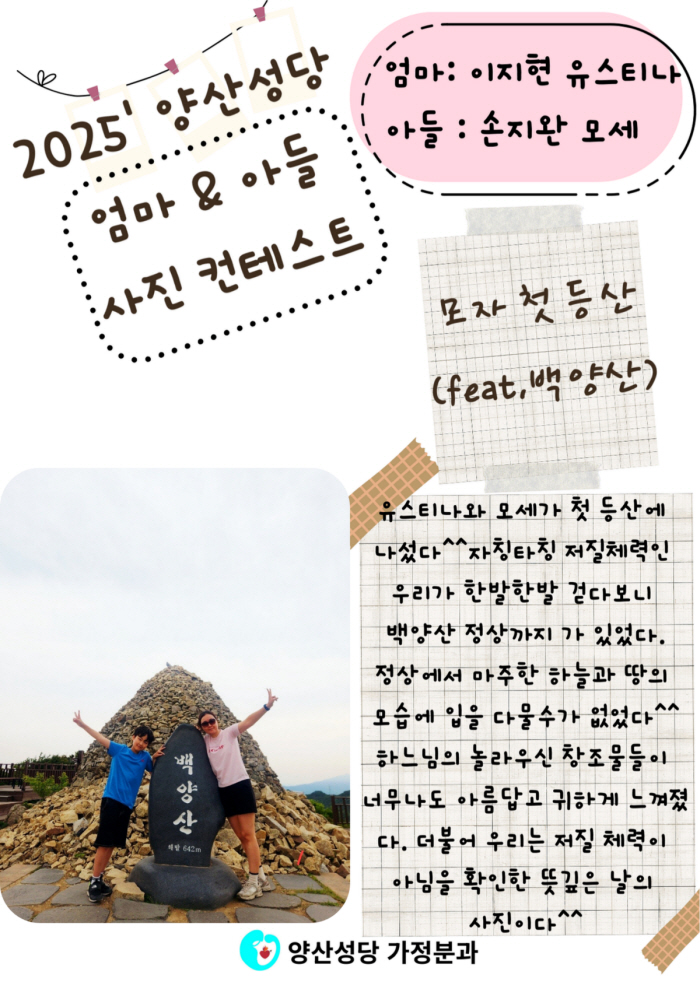 2025' 양산성당
엄마 & 아들
사진 컨테스트
엄마: 이지현 유스티나
아들 : 손지완 모세
모자 첫 등산
(feat.백양산)
유스티나와 모세가 첫 등산에
나섰다^^자칭타칭 저질체력인
우리가 한발한발 걷다보니
백양산 정상까지 가 있었다.
정상에서 마주한 하늘과 땅의
모습에 입을 다물수가 없었다^^
하느님의 놀라우신 창조물들이
너무나도 아름답고 귀하게 느껴졌
다. 더불어 우리는 저질 체력이
아님을 확인한 뜻깊은 날의
사진이다^^
백양산
해발 642m
양산성당 가정분과